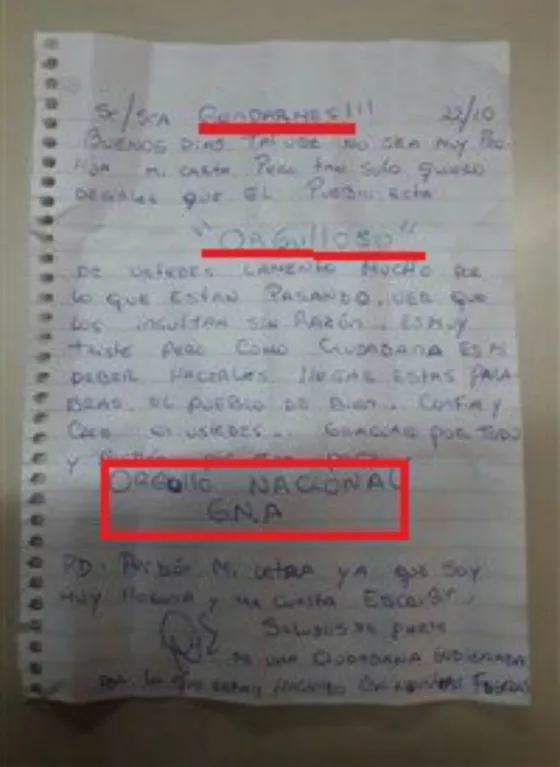 Sr/Sra GENDARMES!!! 22/10
BUENOS DIAS TAL VEZ NO SEA MUY PRO-
LIJA MI CARTA PERO TAN SOLO QUIERO
DECIRLES QUE EL PUEBLO ESTA
"ORGULLOSO"
DE USTEDES LAMENTO MUCHO POR
LO QUE ESTAN PASANDO, VER QUE
LOS INSULTAN SIN RAZÓN. ES MUY
TRISTE PERO COMO CIUDADANA ES MI
DEBER HACERLES LLEGAR ESTAS PALA
BRAS. EL PUEBLO DE BIEN. CONFIA Y
CREE EN USTEDES.. GRACIAS POR TODO
Y
ORGULLO NACIONAL
G.N.A
PD. PERDÓN MI LETRA YA QUE SOY
MUY Y ME CUESTA ESCRIBIR
SALUDOS DE PARTE
DE UNA CIUDADANA INDIGNADA
POR LO QUE ESTAN HACIENDO CON NUESTRAS FUERZAS